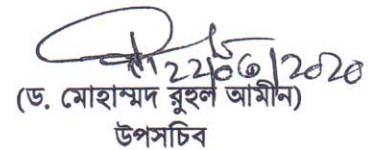 22/06/2020
(ড. মোহাম্মদ রুহুল আমীন)
উপসচিব